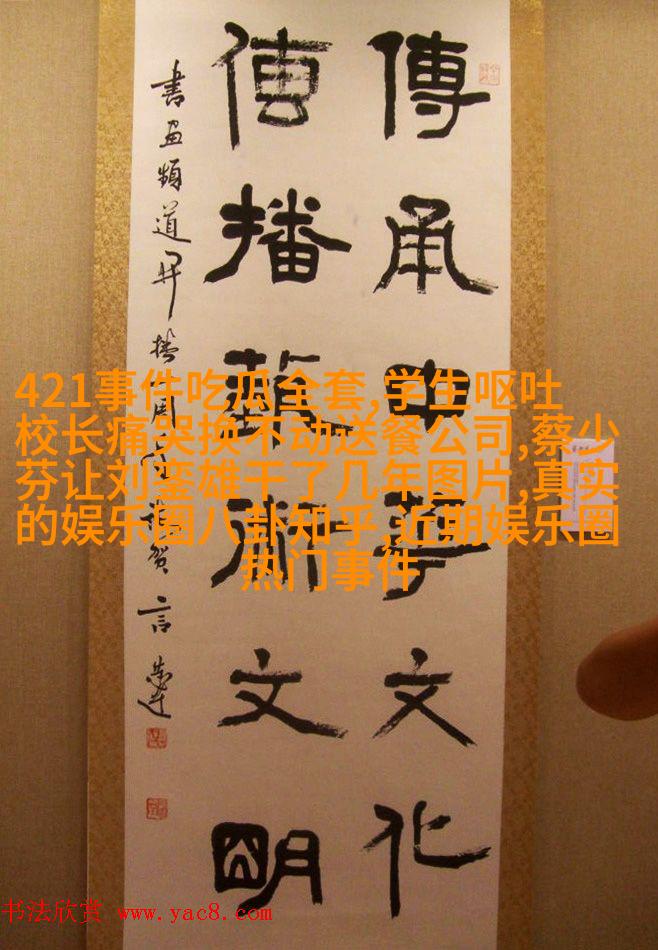 傳承中華文化
傳播藝術文明
書畫頻道開播一周年誌賀
言恭達
421事件吃瓜全套,学生呕吐
校长痛哭换不动送餐公司,蔡少
芬让刘銮雄干了几年图片,真实
的娱乐圈八卦知乎,近期娱乐圈
热门事件
书法欣赏 www.yac8.com